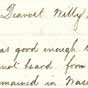 Dearest Willy,
as good enough t
not heard from
mained in Was